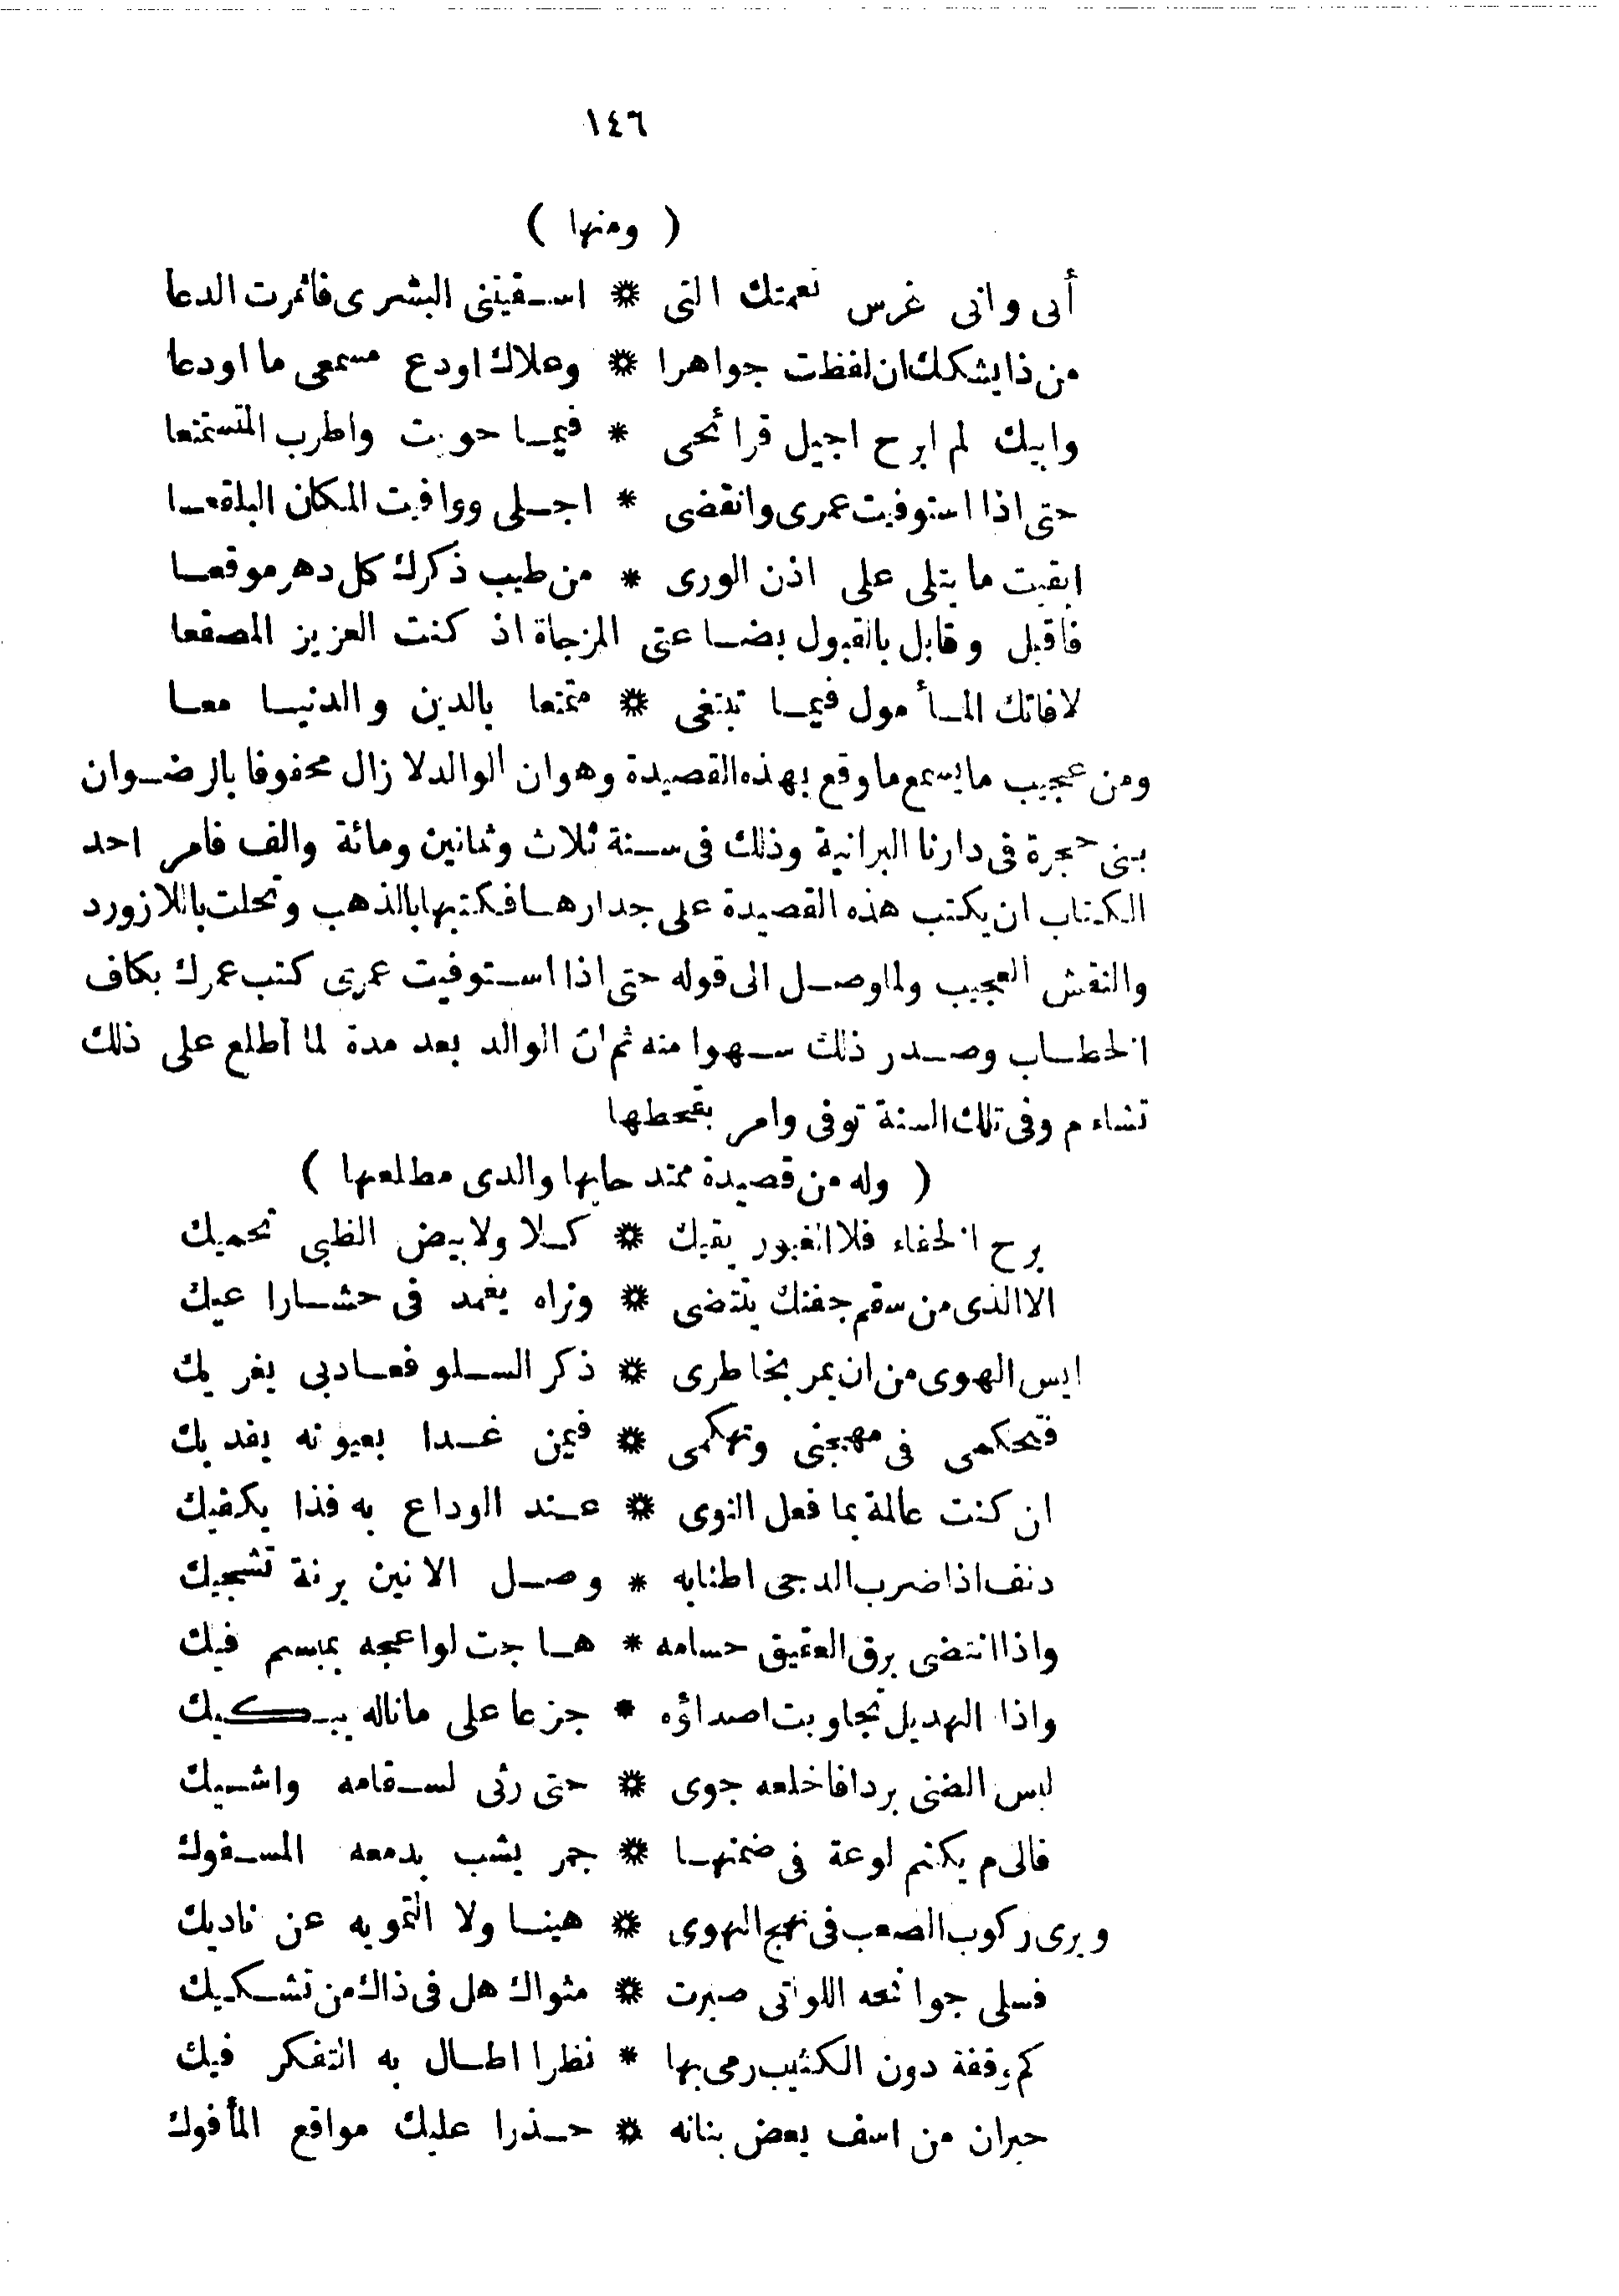 ١٤٦
( ومنها )
أبى وانى غرس نعمتك التى * اسقيتنى البشرى فاثمرت الدعا
من ذا يشكك ان لفظت جواهرا * وعلاك اودع مسمعى ما اودعا
وابيك لم ابرح اجيل قرائحى * فيما حويت واطرب المتستمتعا
حتى اذا استوفيت عمرى وانقضى * اجلى ووافيت المكان البلقعا
ابقيت ما يتلى على اذن الورى * من طيب ذكرك كل دهر موقعا
فاقبل وقابل بالقبول بضاعتى المزجاة اذ كنت العزيز المصقعا
لافاتك المأمول فيما تبتغى * متمتعا بالدين والدنيا معا
ومن عجيب ما يسمع ما وقع بهذه القصيدة وهو ان الوالد لا زال محفوفا بالرضوان
بنى حجرة فى دارنا البرانية وذلك فى سنة ثلاث وثمانين ومائة والف فامر احد
الكتاب ان يكتب هذه القصيدة على جدارها فكتبها بالذهب وتحلت باللازورد
والنقش العجيب ولما وصل الى قوله حتى اذا استوفيت عمرى كتب عمرك بكاف
الخطاب وصدر ذلك سهوا منه ثم ان الوالد بعد مدة لما أطلع على ذلك
تشاءم وفى تلك السنة توفى وامر بقحطها
( وله من قصيدة ممتدحا بها والدى مطلعها )
برح الخفاء فلا الغيور يقيك * كلا ولا بيض الظبى تحميك
الا الذى من سقم جفنك ينتضى * وتراه يغمد فى حشا راعيك
ايس الهوى من ان يمر بخاطرى * ذكر السلو فعاد بى يغريك
فتحكمى فى مهجتى وتهكمى * فيمن غدا بعيونه يفديك
ان كنت عالمة بما فعل النوى * عند الوداع به فذا يكفيك
دنف اذا ضرب الدجى اطنابه * وصل الانين برنة تشجيك
واذا انتضى برق العقيق حسامه * هاجت لواعجه بمبسم فيك
واذا الهديل تجاوبت اصداؤه * جزعا على ما ناله يبكيك
لبس الضنى بردا فاخلعه جوى * حتى رثى لسقامه واشيك
فالى م يكتم لوعة فى ضمنها * جمر يشب بدمعه المسفوك
ويرى ركوب الصعب فى نهج الهوى * هينا ولا التمويه عن ناديك
فسلى جوانحه اللواتى صيرت * مثواك هل فى ذاك من تشكيك
كم وقفة دون الكثيب رمى بها * نظرا اطال به التفكر فيك
حيران من اسف يعض بنانه * حذرا عليك مواقع المأفوك